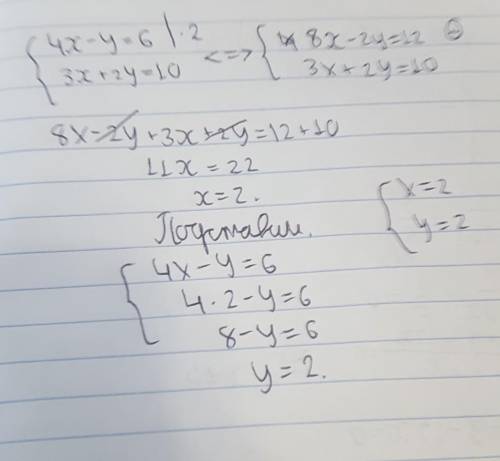 { 4x-y=6 |·2 <=> { 8x-2y=12
{ 3x+2y=10 { 3x+2y=10
8x-2y+3x+2y=12+10
11x=22
x=2.
Подставим.
{ x=2
{ y=2
{ 4x-y=6
4·2-y=6
8-y=6
y=2.